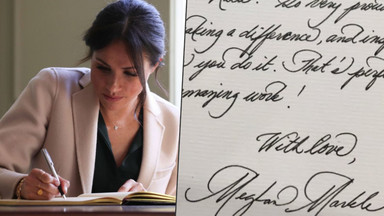 very prou
aking a difference, and
you do it. That's
mazing work!
With love,
Meghan Markle